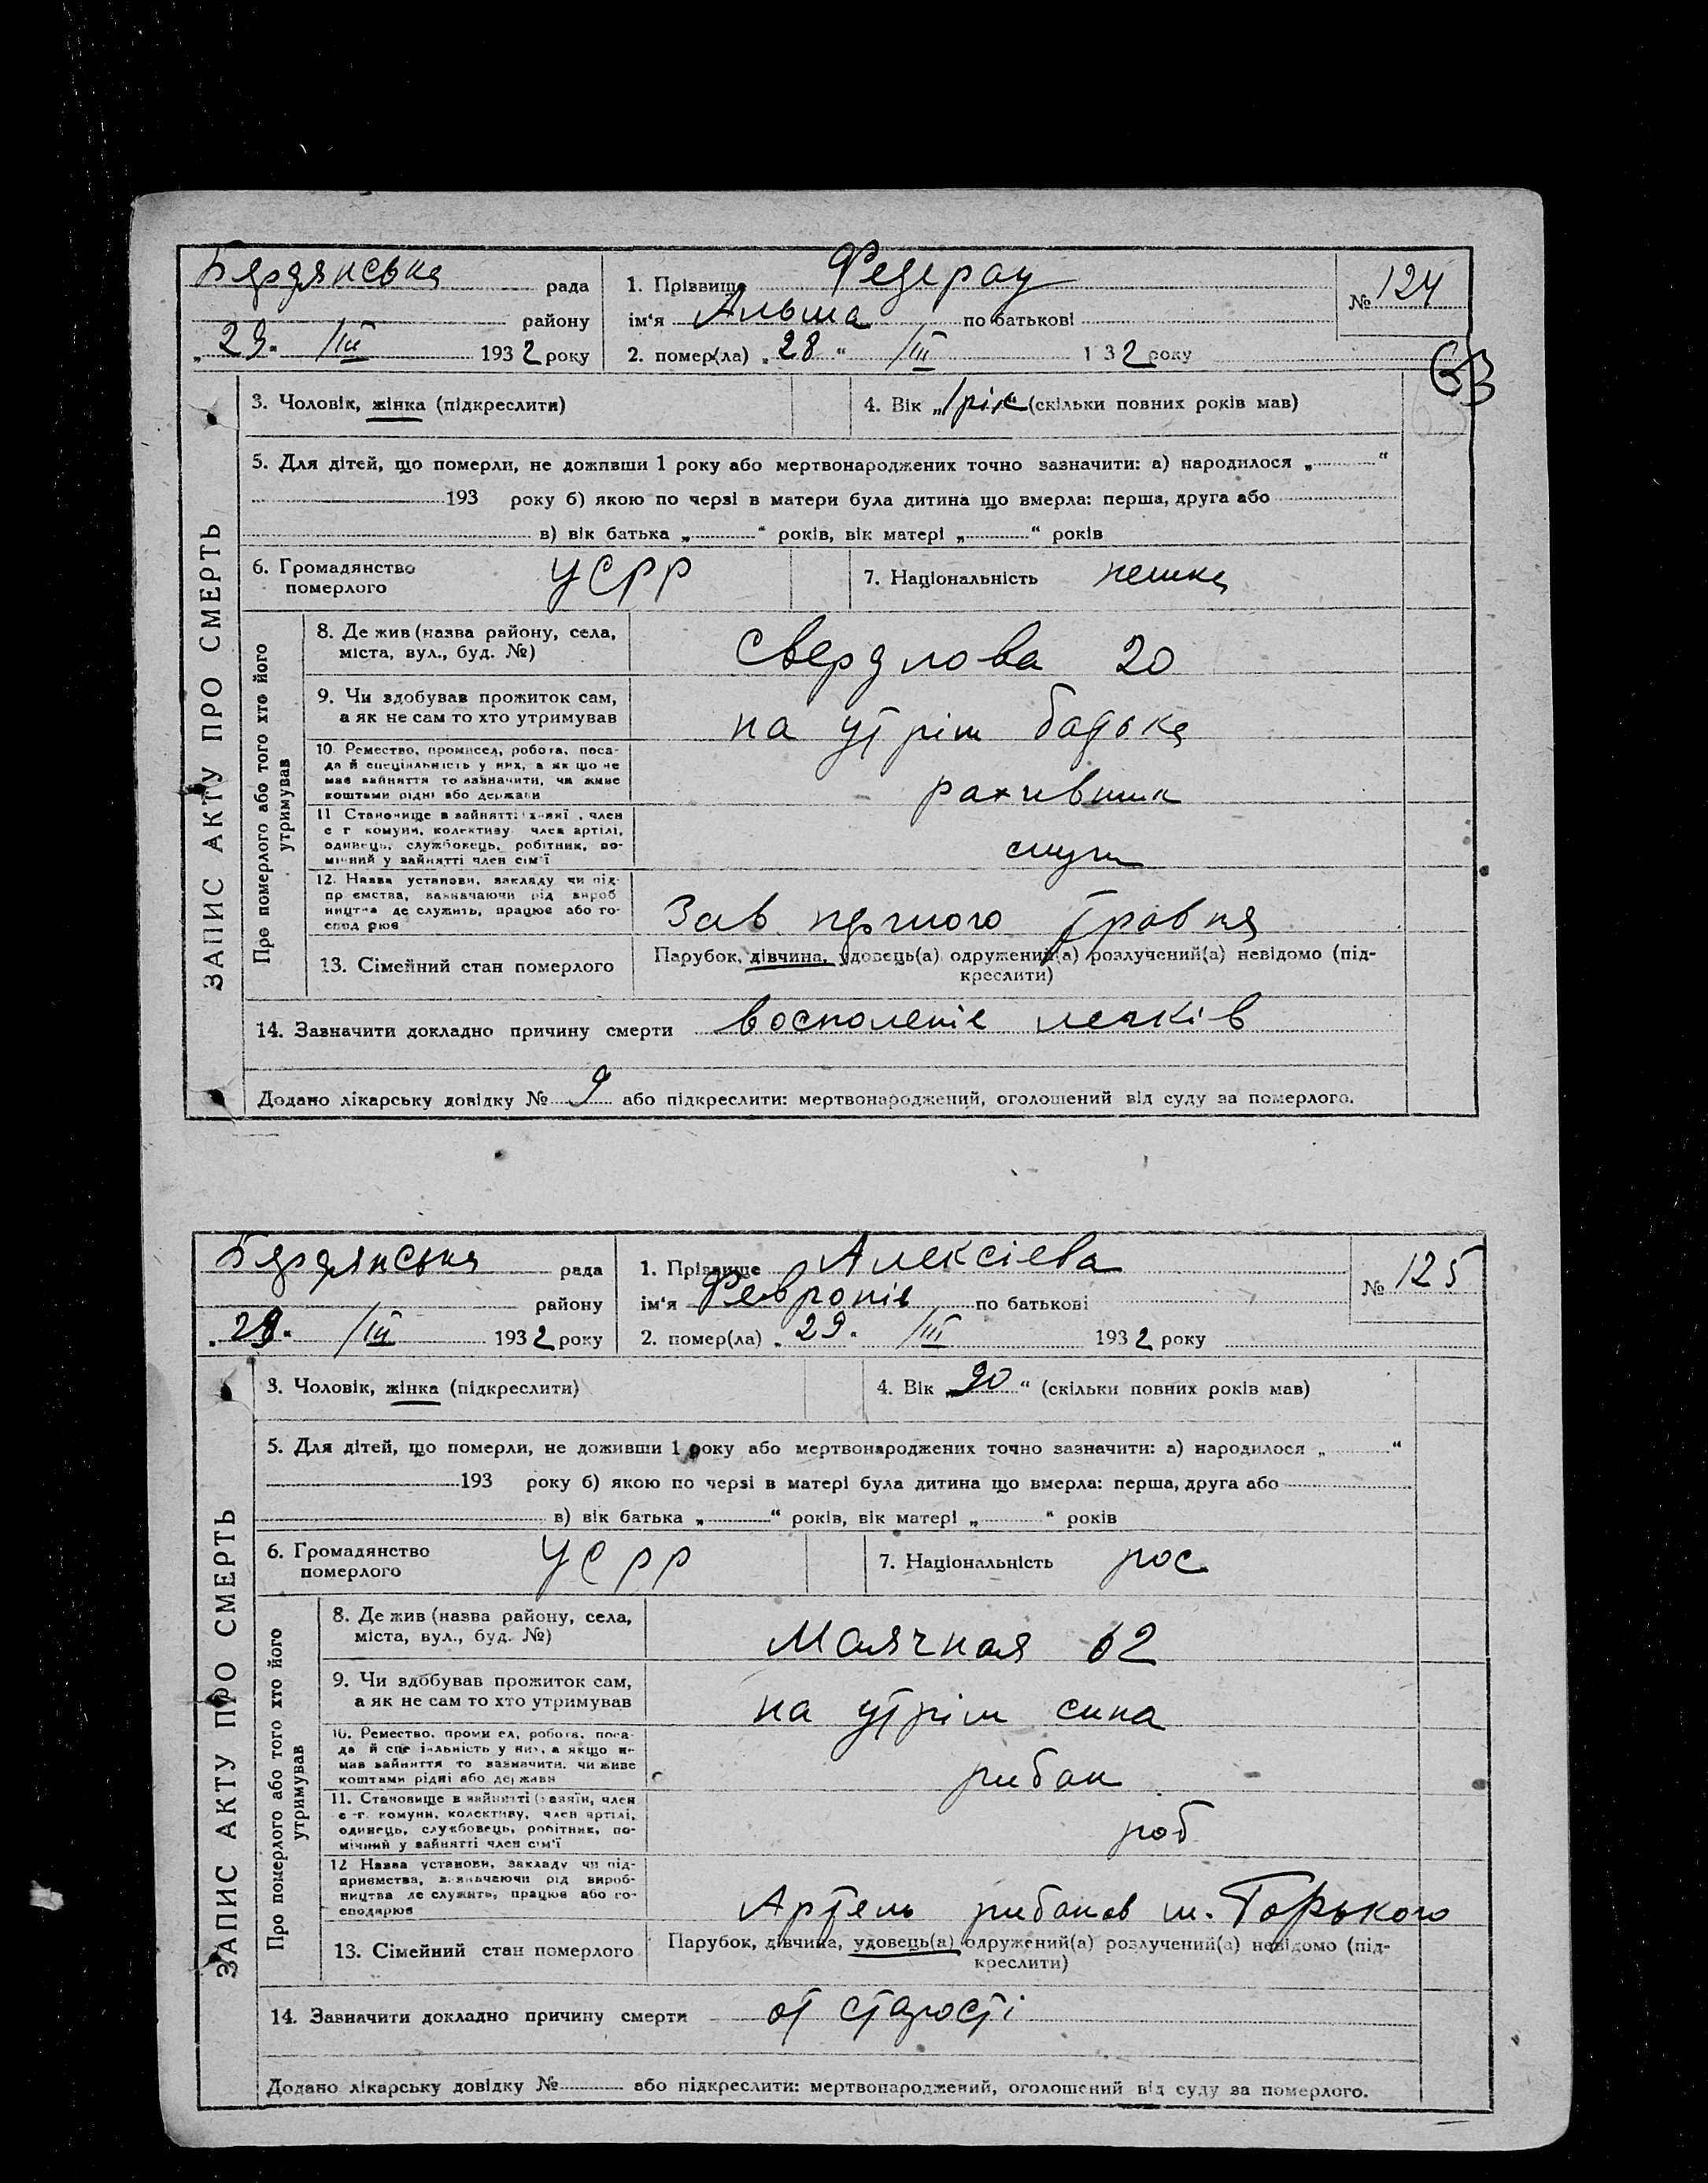 Бердянська рада 1. Прізвище Федерау № 124
району ім'я Альма по батькові
„29“ /III 1932 року 2. помер(ла) „28“ /III 1932 року
63
3. Чоловік, жінка (підкреслити) 4. Вік „1 рік“ (скільки повних років мав)
5. Для дітей, що померли, не доживши 1 року або мертвонароджених точно зазначити: а) народилося „ “
193 року б) якою по черзі в матери була дитина що вмерла: перша, друга або
в) вік батька „ “ років, вік матері „ “ років
6. Громадянство померлого УСРР 7. Національність немка
ЗАПИС АКТУ ПРО СМЕРТЬ
Про померлого або того хто його утримував
8. Де жив (назва району, села,
міста, вул., буд. №) Свердлова 20
9. Чи здобував прожиток сам,
а як не сам то хто утримував на утрім батька
10. Ремество, промисел, робота, поса-
да й спеціяльність у них, а як що не
має зайняття то зазначити, чи живе
коштами рідні або держави рахівник
11 Становище в зайнятті член
с г комуни, колективу член артілі,
одинець, службовець, робітник, по-
мічний у зайнятті член сім'ї служ
12. Назва установи, закладу чи під-
пр ємства, зазначаючи рід вироб
ництва де служить, працює або го-
спод рює Зав першого травня
13. Сімейний стан померлого Парубок, дівчина, удовець(а) одружений(а) розлучений(а) невідомо (під-
креслити)
14. Зазначити докладно причину смерти воспаленіе легків
Додано лікарську довідку № 9 або підкреслити: мертвонароджений, оголошений від суду за померлого.
Бердянська рада 1. Прізвище Алексіева № 125
району ім'я Февронія по батькові
„29“ /III 1932 року 2. помер(ла) „29“ /III 1932 року
3. Чоловік, жінка (підкреслити) 4. Вік „90“ (скільки повних років мав)
5. Для дітей, що померли, не доживши 1 року або мертвонароджених точно зазначити: а) народилося „ “
193 року б) якою по черзі в матері була дитина що вмерла: перша, друга або
в) вік батька „ “ років, вік матері „ “ років
6. Громадянство померлого УСРР 7. Національність рос
ЗАПИС АКТУ ПРО СМЕРТЬ
Про померлого або того хто його утримував
8. Де жив (назва району, села,
міста, вул., буд. №) Маячная 62
9. Чи здобував прожиток сам,
а як не сам то хто утримував на утрім сина
10. Ремество, проми ел, робота, поса-
да й спе іяльність у них, а якщо не
має зайняття то зазначити, чи живе
коштами рідні або держави рибак
11. Становище в зайнятті (хазяїн, член
с-г. комуни, колективу, член артілі,
одинець, службовець, робітник, по-
мічний у зайнятті член сім'ї роб
12 Назва установи, закладу чи під-
приємства, зазначаючи рід вироб-
ництва де служить, працює або го-
сподарює Артель рибаков им. Горького
13. Сімейний стан померлого Парубок, дівчина, удовець(а) одружений(а) розлучений(а) невідомо (під-
креслити)
14. Зазначити докладно причину смерти от старості
Додано лікарську довідку № або підкреслити: мертвонароджений, оголошений від суду за померлого.